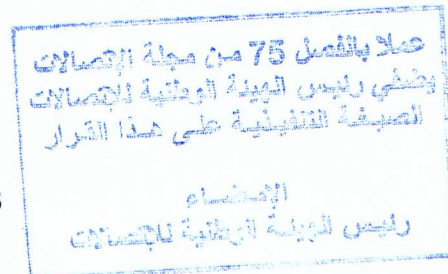 عملا بالفصل 75 من مجلة الإتصالات
يمضي رئيس الهيئة الوطنية للاتصالات
الصيغة التنفيذية على هذا القرار
الإمضاء
رئيس الهيئة الوطنية للإتصالات